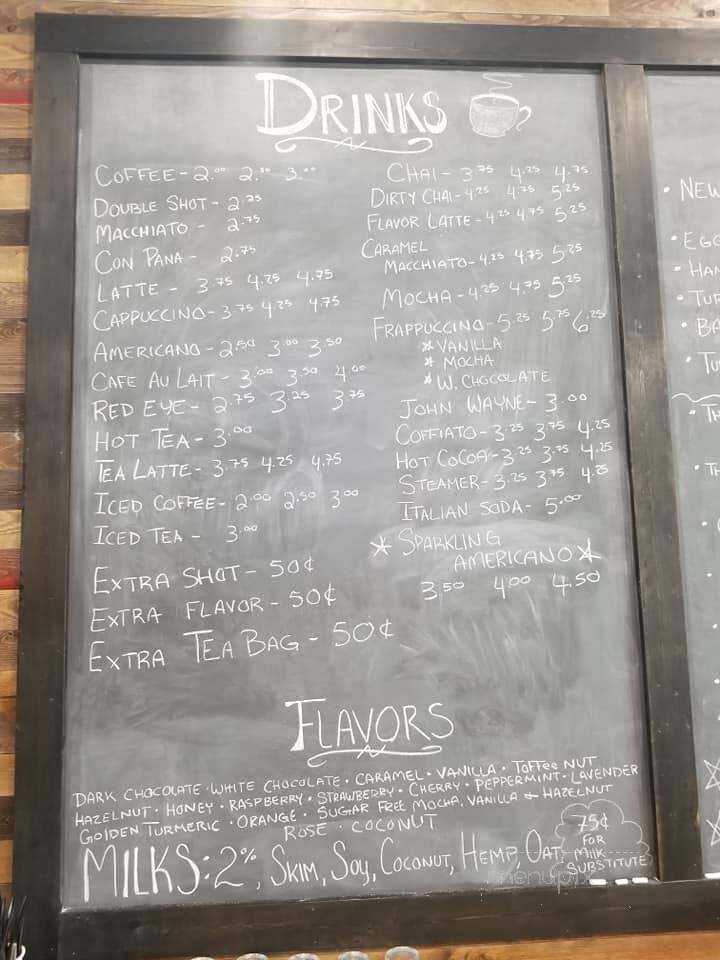 DRINKS
COFFEE - 2.00 2.50 3.00
DOUBLE SHOT - 2.25
MACCHIATO - 2.75
CON PANA - 2.75
LATTE - 3.75 4.25 4.75
CAPPUCCINO - 3.75 4.25 4.75
AMERICANO - 2.50 3.00 3.50
CAFE AU LAIT - 3.00 3.50 4.00
RED EYE - 2.75 3.25 3.75
HOT TEA - 3.00
TEA LATTE - 3.75 4.25 4.75
ICED COFFEE - 2.00 2.50 3.00
ICED TEA - 3.00
EXTRA SHOT - 50¢
EXTRA FLAVOR - 50¢
EXTRA TEA BAG - 50¢
CHAI - 3.75 4.25 4.75
DIRTY CHAI - 4.25 4.75 5.25
FLAVOR LATTE - 4.25 4.75 5.25
CARAMEL
MACCHIATO - 4.25 4.75 5.25
MOCHA - 4.25 4.75 5.25
FRAPPUCCINO - 5.25 5.75 6.25
* VANILLA
* MOCHA
* W. CHOCOLATE
JOHN WAYNE - 3.00
COFFIATO - 3.25 3.75 4.25
HOT COCOA - 3.25 3.75 4.25
STEAMER - 3.25 3.75 4.25
ITALIAN SODA - 5.00
* SPARKLING
AMERICANO *
3.50 4.00 4.50
FLAVORS
DARK CHOCOLATE · WHITE CHOCOLATE · CARAMEL · VANILLA · TOFFEE NUT
HAZELNUT · HONEY · RASPBERRY · STRAWBERRY · CHERRY · PEPPERMINT · LAVENDER
GOLDEN TURMERIC · ORANGE · SUGAR FREE MOCHA, VANILLA & HAZELNUT
ROSE · COCONUT
MILKS: 2%, SKIM, SOY, COCONUT, HEMP, OAT
75¢
FOR
MILK
SUBSTITUTE
menupix
• NEW
• EGG
• HAM